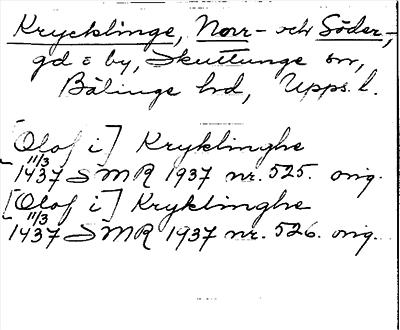 Krycklinge, Norr- och Söder-,
gd o by, Skuttunge sn,
Bälinge hd, Upps. l.
[Olof i] Kryklinghe
11/3
1437 SMR 1937 nr. 525. orig.
[Olof i] Kryklinghe
11/3
1437 SMR 1937 nr. 526. orig.